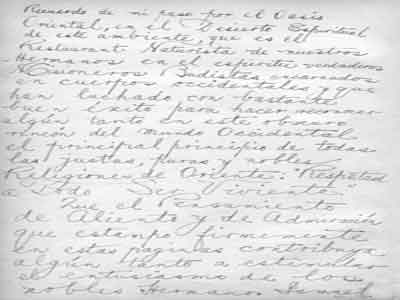 Recuerdo de mi paso por el Oasis
Oriental, en el Desierto Espiritual
de este ambiente, que es el
Restaurant Naturista de nuestros
Hermanos en el espíritu verdaderos
Misioneros Budistas encarnados
en cuerpos occidentales y que
han luchado con bastante
buen éxito para hacer reconocer
algún tanto en este obscuro
rincón del mundo Occidental
el principal principio de todas
las justas, puras y nobles
Religiones de Oriente: "Respetad
a todo Ser Viviente".
Que el Pensamiento
de Aliento y de Admiración
que estampo firmemente
en estas paginas contribuya
algún tanto a estimular
el entusiasmo de los
nobles Hermanos Ismael